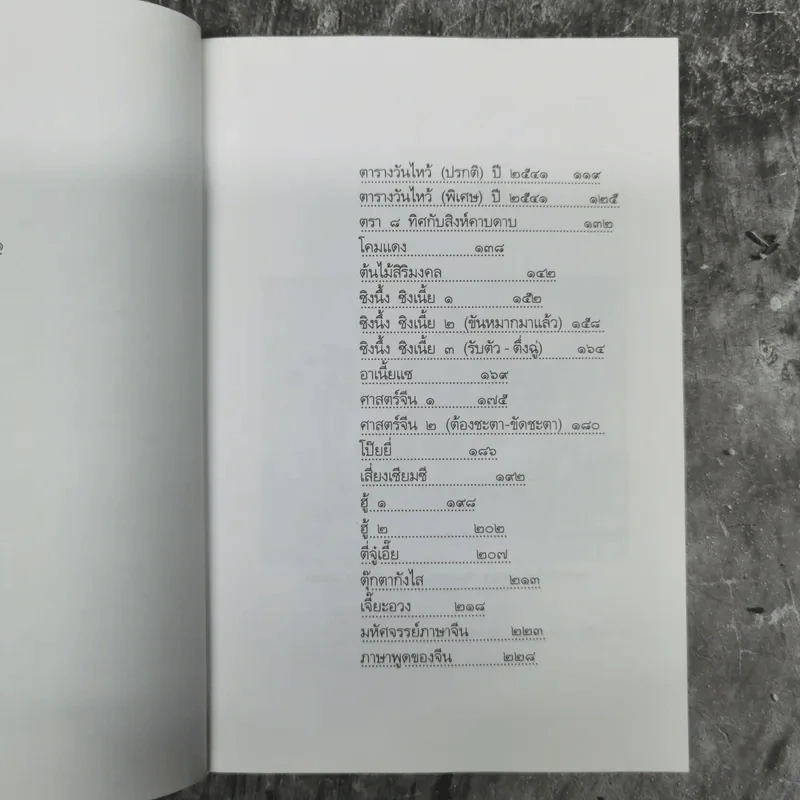 ตารางวันไหว้ (ปรกติ) ปี ๒๕๔๑ ๑๑๙
ตารางวันไหว้ (พิเศษ) ปี ๒๕๔๑ ๑๒๕
ตรา ๘ ทิศกับสิงห์คาบดาบ ๑๓๒
โคมแดง ๑๓๘
ต้นไม้สิริมงคล ๑๔๒
ซิงนึ้ง ซิงเนี้ย ๑ ๑๕๒
ซิงนึ้ง ซิงเนี้ย ๒ (ขันหมากมาแล้ว) ๑๕๘
ซิงนึ้ง ซิงเนี้ย ๓ (รับตัว - ตึ่งฉู่) ๑๖๔
อาเนี้ยแซ ๑๖๙
ศาสตร์จีน ๑ ๑๗๕
ศาสตร์จีน ๒ (ต้องชะตา-ขัดชะตา) ๑๘๐
โป๊ยยี่ ๑๘๖
เสี่ยงเซียมซี ๑๙๒
ฮู้ ๑ ๑๙๘
ฮู้ ๒ ๒๐๒
ตี่จู่เอี๊ย ๒๐๗
ตุ๊กตากังไส ๒๑๓
เจี๊ยะอวง ๒๑๘
มหัศจรรย์ภาษาจีน ๒๒๓
ภาษาพูดของจีน ๒๒๘